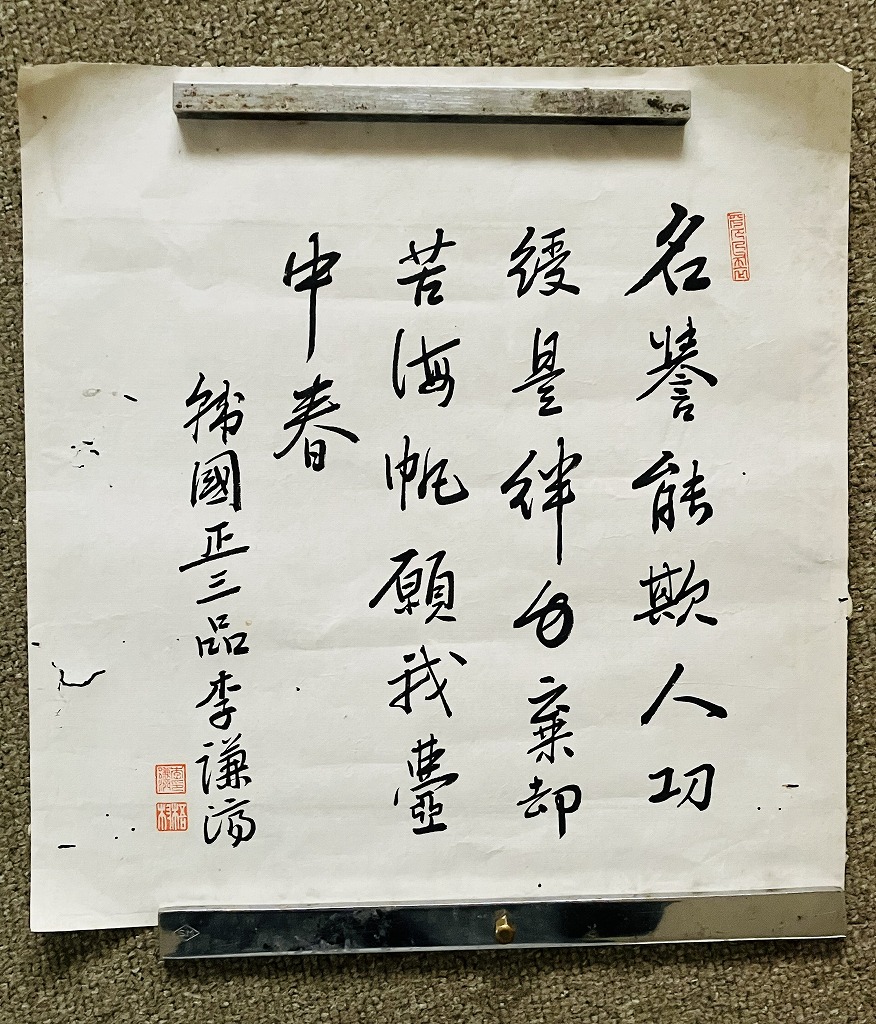 名譽能欺人功
綬是絆棄却
苦海帆願我壺
中春
韓國正三品李謙濟